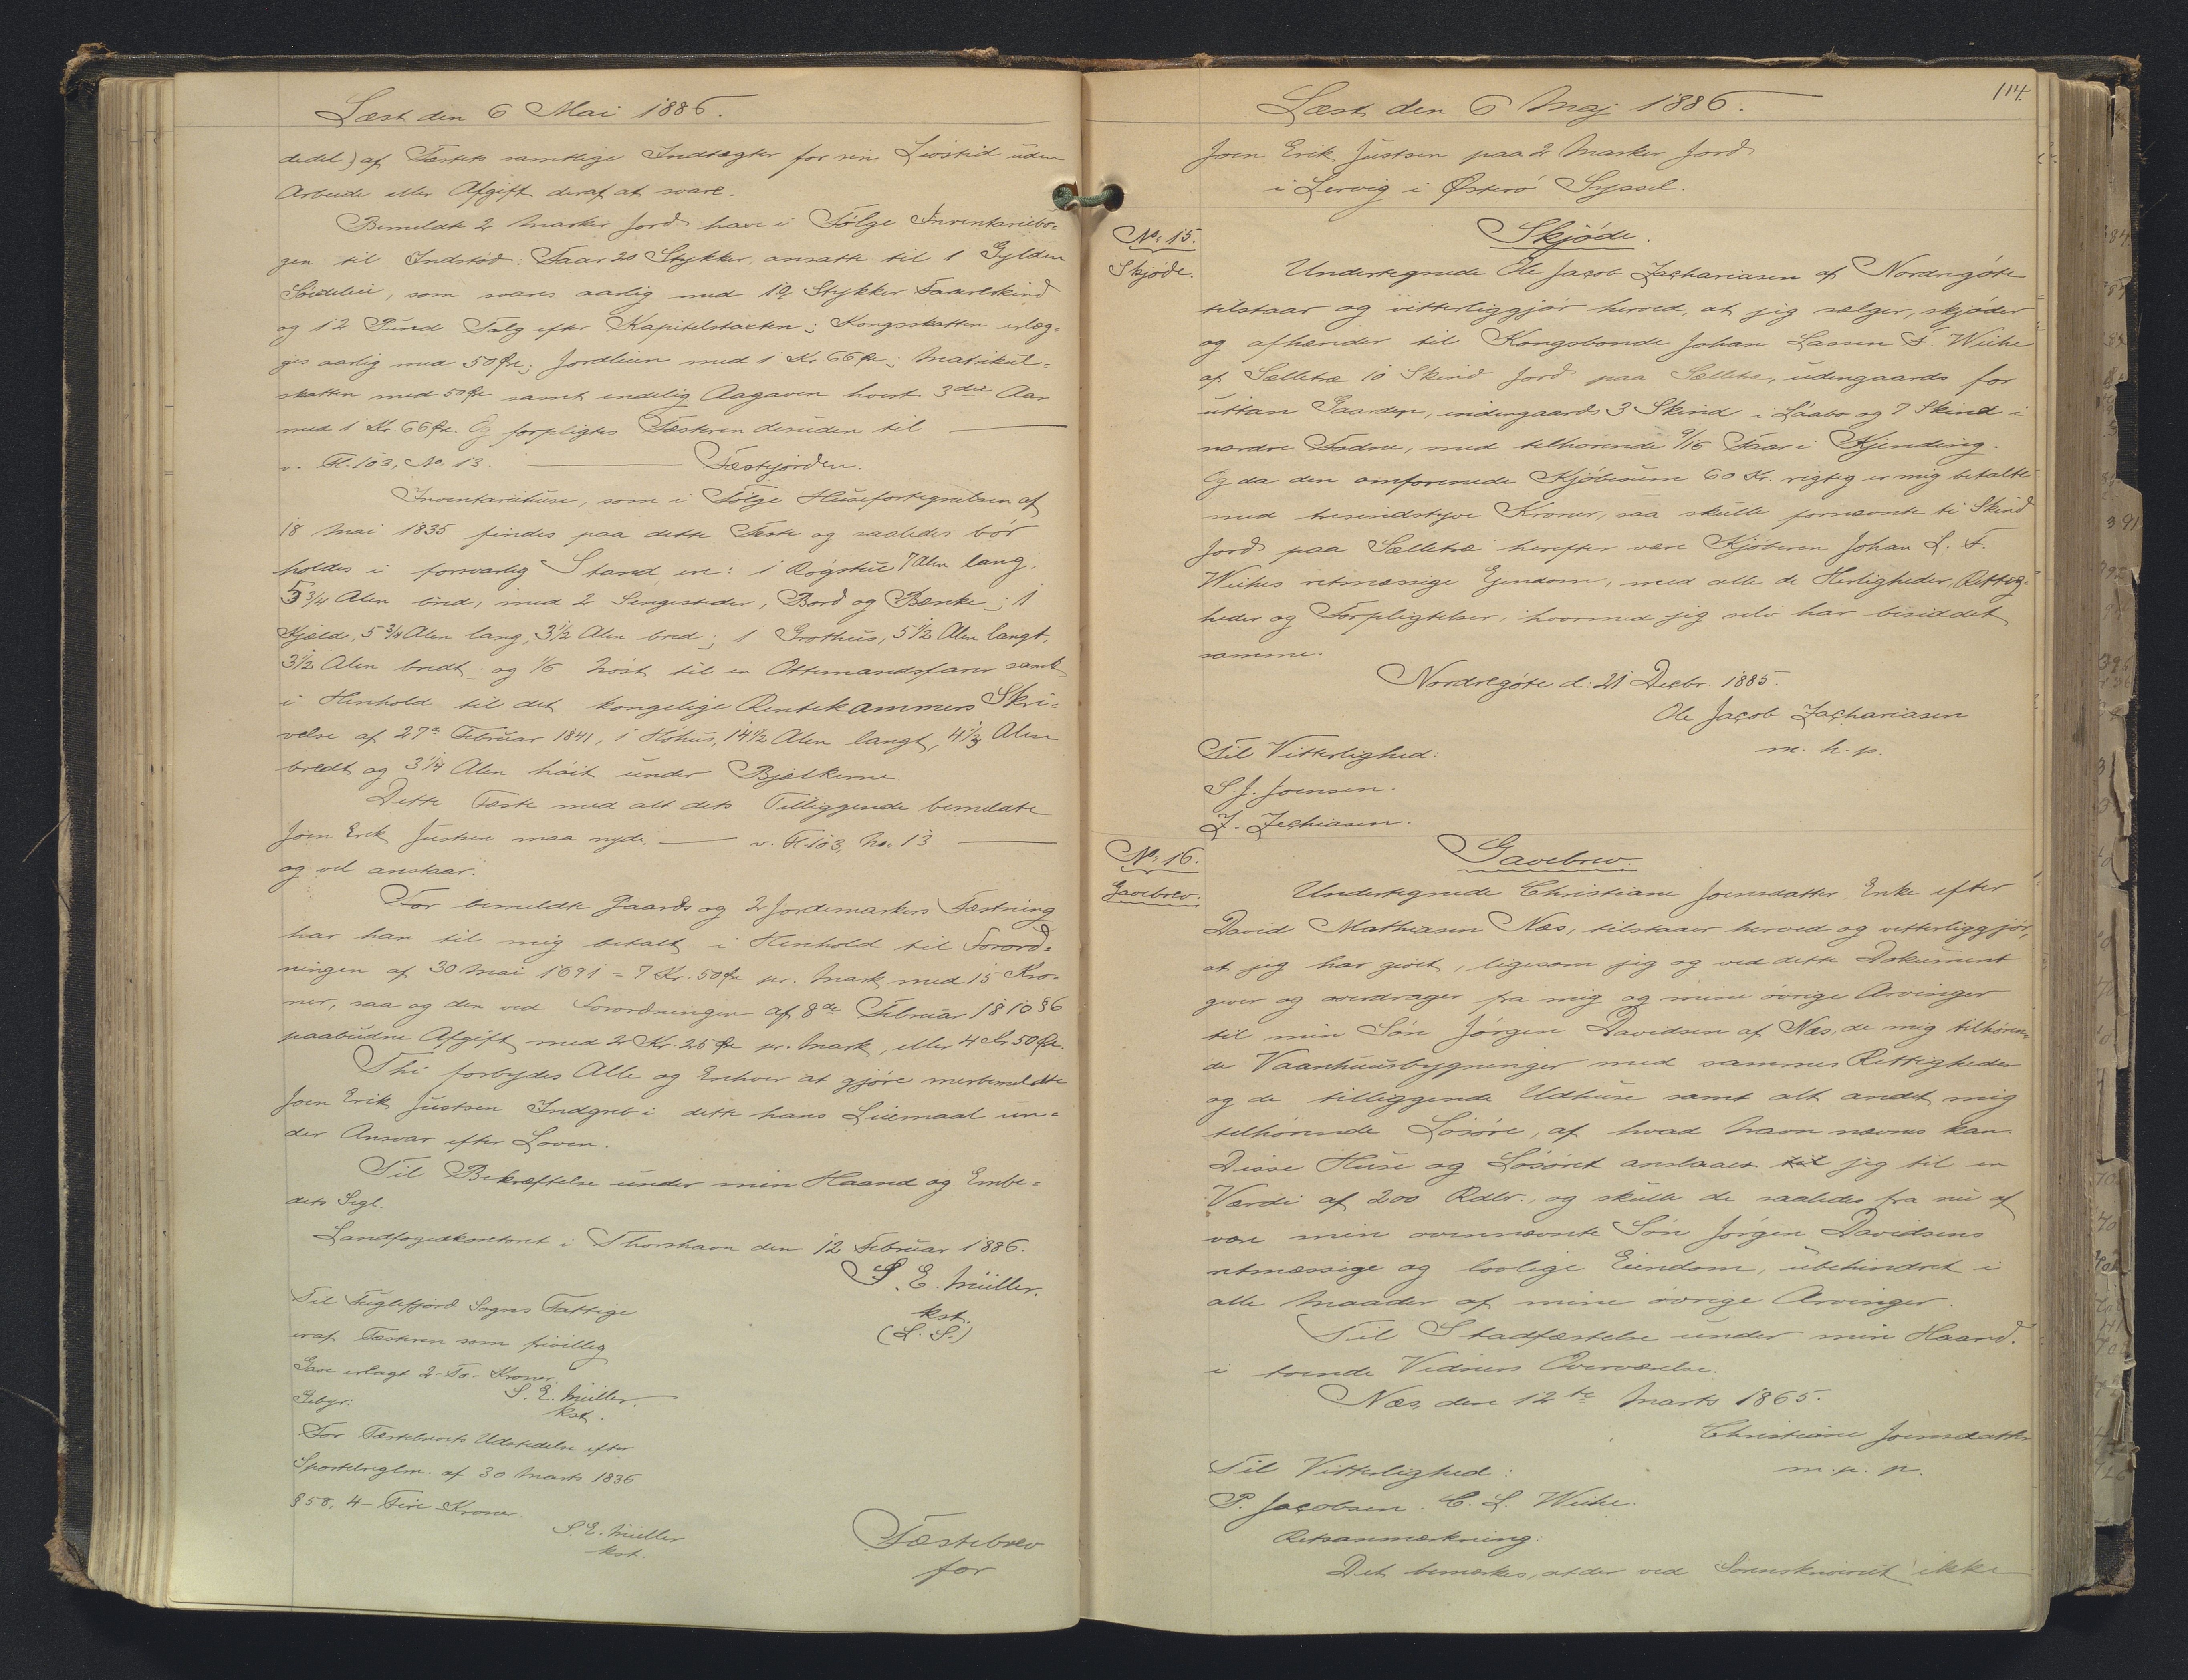 Læst den 6 Mai 1886.
dedel) af Fæstets samtlige Indtægter for sin Livstid uden
Arbeide eller Afgift deraf at svare.
Bemeldte 2 Marker Jord have i Følge Inventariebø-
gen til Indstød: Faar 20 Stykker, ansatte til 1 Gylden
Søideleie, som svares aarlig med 12 Stykker Faareskind
og 12 Pund Talg efter Kapitelstaxten; Kongsskatten erlæg-
ges aarlig med 50 Øre; Jordleien med 1 Kr. 66 Øre; Matrikul-
skatten med 50 Øre samt endelig Aagaven hvert 3die Aar
med 1 Kr. 66 Øre. Og forpligtes Fæsteren desuden til
v. Fl. 103, No. 13. Fæstejorden.
Inventariehuse, som i Følge Husefortegnelsen af
18 Mai 1835 findes paa dette Fæste og saaledes bør
holdes i forsvarlig Stand, ere: 1 Røgstue 7 Alen lang,
5 3/4 Alen bred, med 2 Sengesteder, Bord og Bænke; 1
Hjæld, 5 3/4 Alen lang, 3 1/2 Alen bred; 1 Grothus, 5 1/2 Alen langt,
3 1/2 Alen bredt; og 1/6 Nøst til en Ottemandsfarer samt
i Henhold til det kongelige Rentekammers Skri-
velse af 27de Februar 1841, 1 Høhus, 14 1/2 Alen langt, 4 1/3 Alen
bredt og 3 1/4 Alen høit under Bjelkerne.
Dette Fæste med alt dets Tilliggende bemeldte
Joen Erik Justsen maa nyde. v. Fl. 103, No. 13
og vel anstaar.
For bemeldte Gaards og 2 Jordemarkers Fæstning
har han til mig betalt i Henhold til Forord-
ningen af 30 Mai 1691 = 7 Kr. 50 Øre pr. Mark med 15 Kro-
ner, saa og den ved Forordningen af 8de Februar 1810 § 6
paabudne Afgift med 2 Kr. 25 Øre pr. Mark, eller 4 Kr. 50 Øre.
Thi forbydes Alle og Enhver at gjøre merbemeldte
Joen Erik Justsen Indgreb i dette hans Leiemaal un-
der Ansvar efter Loven.
Til Bekræftelse under min Haand og Embe-
dets Segl.
Landfogedkontoret i Thorshavn den 12 Februar 1886.
S. E. Müller.
kst.
(L. S.)
Til Fuglefjord Sogns Fattige
er af Fæsteren som frivillig
Gave erlagt 2 - To - Kroner.
S. E. Müller.
kst.
Gebyr:
For Fæstebrevets Udstedelse efter
Sportelreglm. af 30 Marts 1836
§ 58, 4 - Fire Kroner.
S. E. Müller
kst.
Fæstebrev
for
114.
Læst den 6 Maj 1886.
Joen Erik Justsen paa 2 Marker Jord
i Lervig i Østerø Syssel.
No. 15.
Skjøde.
Skjøde.
Undertegnede Ole Jacob Zachariasen af Nordregøte
tilstaar og vitterliggjør herved, at jeg sælger, skjøder
og afhænder til Kongsbonde Johan Lassen F. Weihe
af Selletræ 10 Skind Jord paa Selletræ, udengaards for
uttan Gaarden, indengaards 3 Skind i Láabo og 7 Skind i
nordre Tradne, med tilhørende 9/16 Faar i Kjending.
Og da den omforenede Kjøbesum 60 Kr. rigtig er mig betalte
med tresindstyve Kroner, saa skulle fornævnte ti Skind
Jord paa Selletræ herefter være Kjøberen Johan L. F.
Weihes retmæssige Ejendom, med alle de Herligheder, Rettig-
heder og Forpligtelser, hvormed jeg selv har besiddet
samme.
Nordregøte d: 21 Decbr. 1885.
Ole Jacob Zachariasen
m. h. p.
Til Vitterlighed:
S. J. Joensen.
Z. Zachiasen.
No. 16.
Gavebrev.
Gavebrev.
Undertegnede Christiane Joensdatter Enke efter
David Mathiasen Næs, tilstaaer herved og vitterliggjør,
at jeg har givet, ligesom jeg og ved dette Dokument
giver og overdrager fra mig og mine øvrige Arvinger
til min Søn Jørgen Davidsen af Næs, de mig tilhøren-
de Vaanhuusbygninger med sammes Rettigheder
og de tilliggende Udhuse samt alt andet mig
tilhørende Løsøre, af hvad Navn nævnes kan.
Disse Huse og Løsøret anslaaer til jeg til en
Værdi af 200 Rdlr., og skulle de saaledes fra nu af
være min ovennævnte Søn Jørgen Davidsens
retmæssige og lovlige Eiendom, ubehindret i
alle Maader af mine øvrige Arvinger.
Til Stadfæstelse under min Haand.
i tvende Vidners Overværelse.
Næs, den 12te Marts 1865.
Christiane Joensdatter
m. p. p.
Til Vitterlighed:
P. Jacobsen. C. L. Weihe.
Retsanmærkning:
Det bemærkes, at der ved Sorenskriveriet ikke